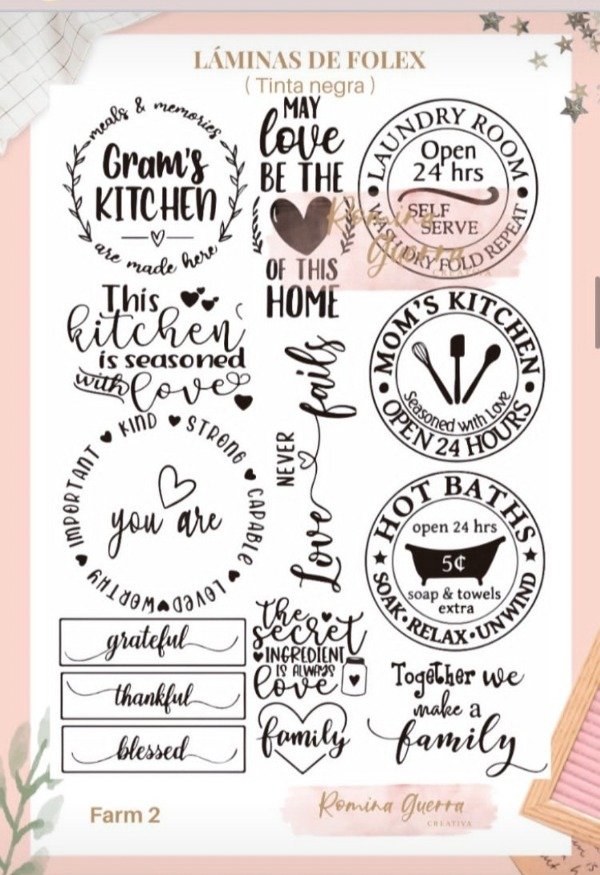 LÁMINAS DE FOLEX
( Tinta negra )
meals & memories
Gram's
KITCHEN
are made here
MAY
love
BE THE
OF THIS
HOME
LAUNDRY ROOM
Open
24 hrs
SELF
SERVE
WASH DRY FOLD REPEAT
Romina
Guerra
CREATIVA
This
kitchen
is seasoned
with love
MOM'S KITCHEN
Seasoned with Love
OPEN 24 HOURS
Love NEVER fails
KIND STRONG CAPABLE LOVED WORTHY IMPORTANT
you are
HOT BATHS
open 24 hrs
5¢
soap & towels
extra
SOAK·RELAX·UNWIND
grateful
thankful
blessed
the
secret
INGREDIENT
IS ALWAYS
love
family
Together we
make a
family
Farm 2
Romina Guerra
CREATIVA